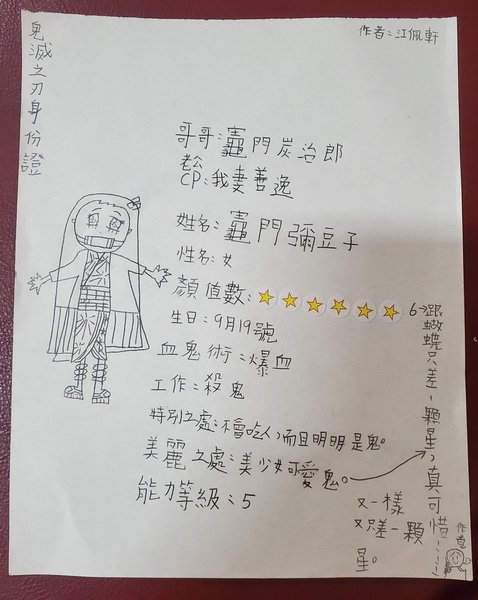 鬼滅之刃身份證
作者：江佩軒
哥哥：竈門炭治郎
老公
CP：我妻善逸
姓名：竈門彌豆子
性名：女
顏值數：
生日：9月19號
血鬼術：爆血
工作：殺鬼
特別之處：不會吃人，而且明明是鬼。
美麗之處：美少女可愛鬼。
能力等級：5
6→跟蝴蝶只差1顆星，真可惜
又一樣
又只差一顆
星。
作者